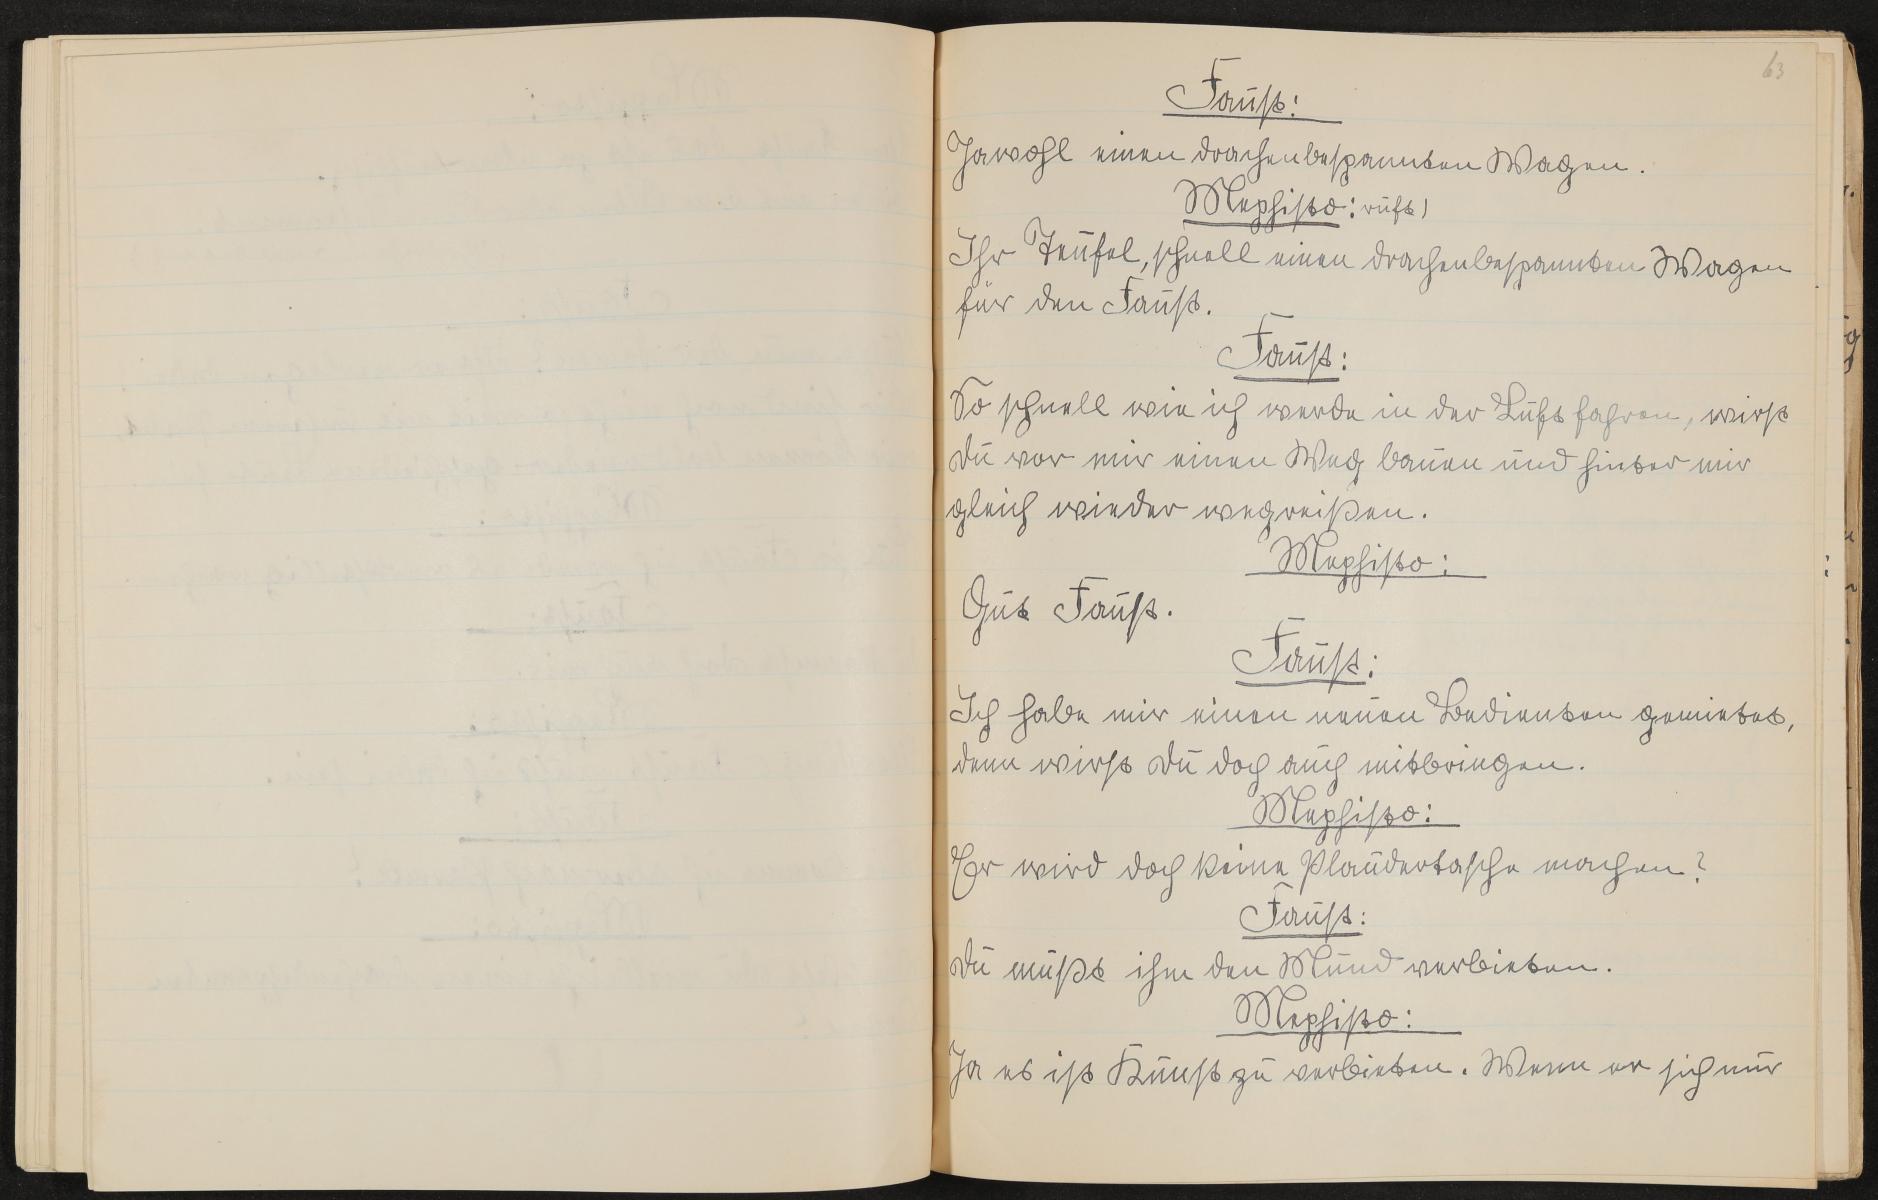 63
Faust:
Jawohl einen drachenbespannten Wagen.
Mephisto: ruft)
Ihr Teufel, schnell einen drachenbespannten Wagen
für den Faust.
Faust:
So schnell wie ich werde in der Luft fahren, wirst
du vor mir einen Weg bauen und hinter mir
gleich wieder wegreißen.
Mephisto:
Gut Faust.
Faust:
Ich habe mir einen neuen Bedienten gemietet,
denn wirst du doch auch mitbringen.
Mephisto:
Er wird doch keine Plaudertasche machen?
Faust:
Du mußt ihm den Mund verbieten.
Mephisto:
Ja es ist Kunst zu verbieten. Wenn er sich nur